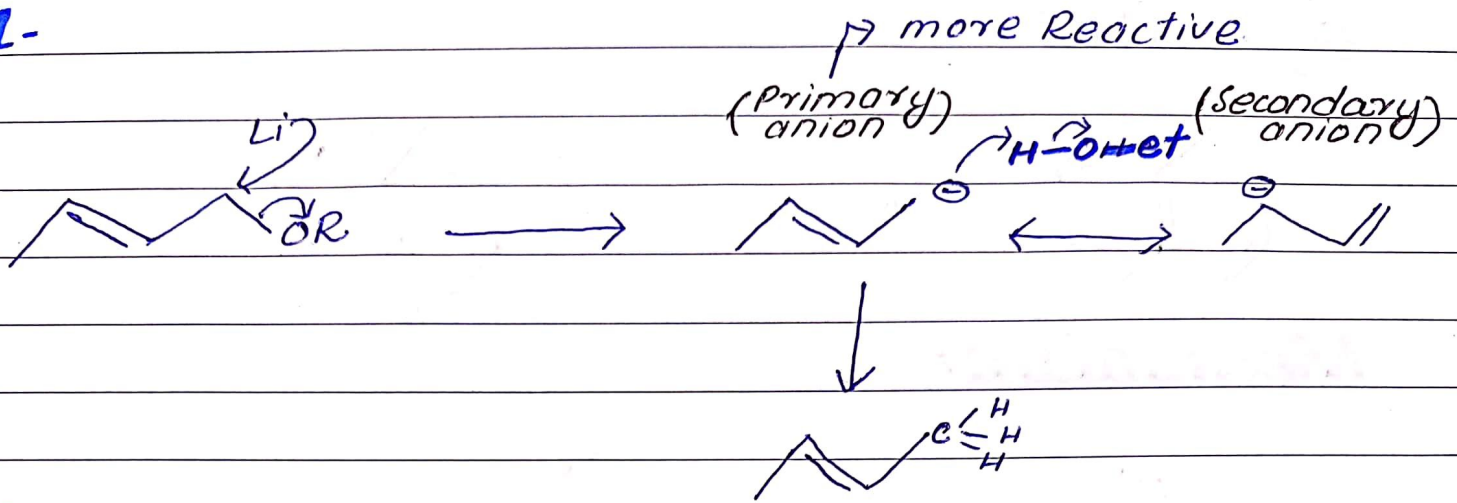 1-
more Reactive
(Primary anion) (Secondary anion)
Li
H-O-et
⊖ ⊖
ÖR
C H
H
H